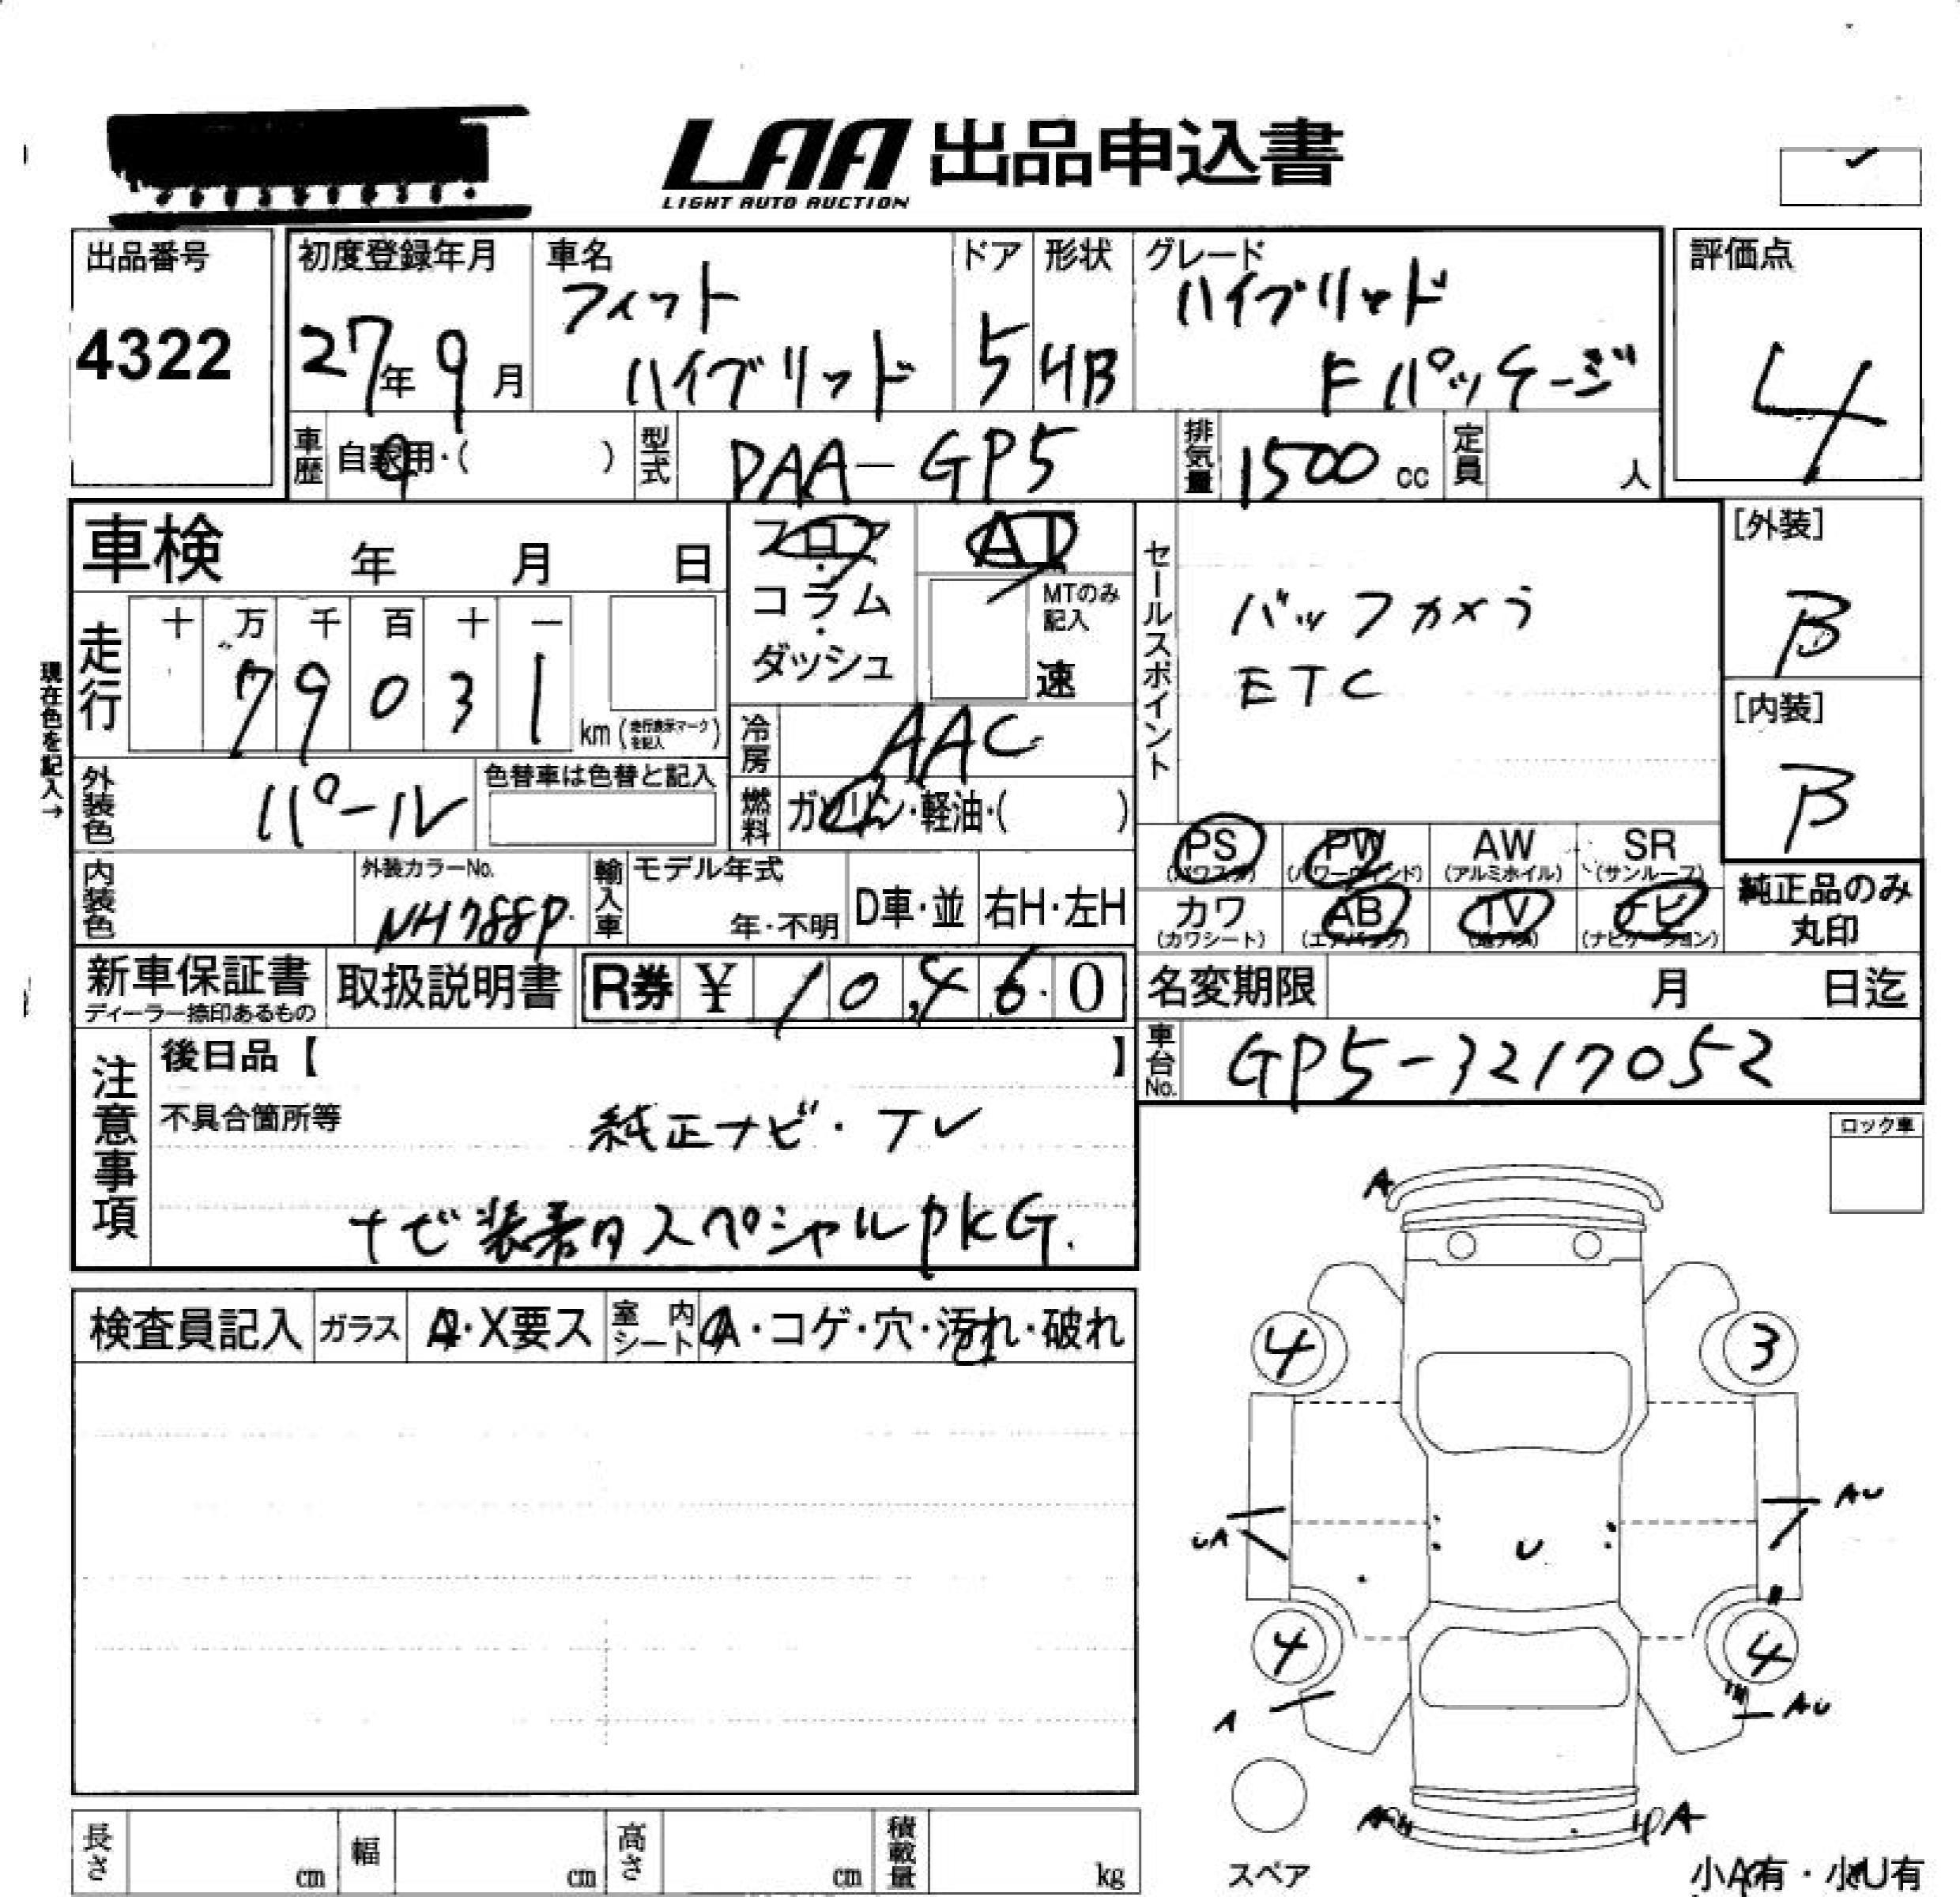 LAA 出品申込書
LIGHT AUTO AUCTION
出品番号
4322
初度登録年月
27年 9月
車名
フィット
ハイブリッド
ドア
5
形状
HB
グレード
ハイブリッド
Fパッケージ
評価点
4
車歴
自家用・( )
型式
DAA-GP5
排気量
1500 cc
定員
人
車検 年 月 日
フロア
・
コラム
・
ダッシュ
AT
MTのみ
記入
速
セールスポイント
バックカメラ
ETC
[外装]
B
[内装]
B
現在色を記入→
走行
十 万 千 百 十 一
7 9 0 3 1
km (走行表示マークを記入)
冷房
AAC
外装色
パール
色替車は色替と記入
燃料
ガソリン・軽油・( )
PS AW SR
PW
(パワーウインド) (アルミホイル) (サンルーフ)
カワ AB TV ナビ
(カワシート) (エアバッグ) (ナビゲーション)
純正品のみ
丸印
内装色
外装カラーNo.
NH788P
輸入車
モデル年式
年・不明
D車・並
右H・左H
新車保証書
ディーラー捺印あるもの
取扱説明書
R券 ¥ 10,460
名変期限 月 日迄
車台No.
GP5-3217052
注意事項
後日品【 】
不具合箇所等
純正ナビ・TV
ナビ装着用スペシャルPKG.
ロック車
A
検査員記入
ガラス
A・X要ス
室内
シート
A・コゲ・穴・汚れ・破れ
4 3
AU
UA
U
4 4
A
AU
A
A
スペア
小A有・小U有
長さ cm
幅 cm
高さ cm
積載量 kg